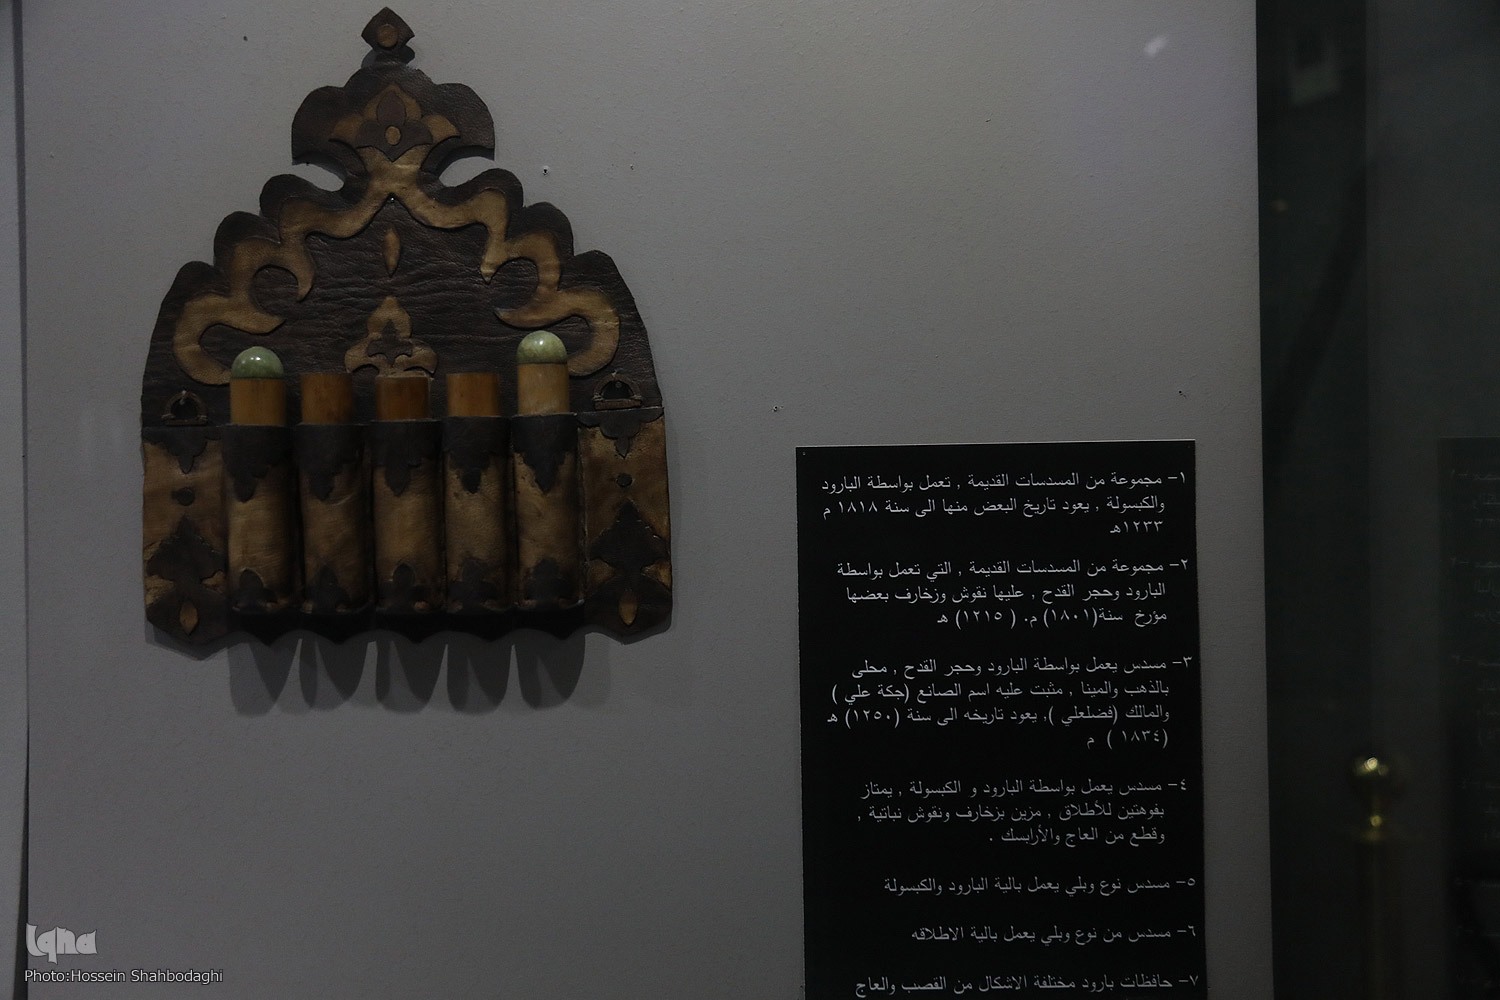 ١- مجموعة من المسدسات القديمة , تعمل بواسطة البارود
والكبسولة , يعود تاريخ البعض منها الى سنة ١٨١٨ م
١٢٣٣هـ
٢- مجموعة من المسدسات القديمة , التي تعمل بواسطة
البارود وحجر القدح , عليها نقوش وزخارف بعضها
مؤرخ سنة(١٨٠١) م. ( ١٢١٥) هـ
٣- مسدس يعمل بواسطة البارود وحجر القدح , محلى
بالذهب والمينا , مثبت عليه اسم الصانع (جكة علي )
والمالك (فضلعلي ), يعود تاريخه الى سنة (١٢٥٠) هـ
(١٨٣٤ ) م
٤- مسدس يعمل بواسطة البارود و الكبسولة , يمتاز
بفوهتين للأطلاق , مزين بزخارف ونقوش نباتية ,
وقطع من العاج والأرابسك .
٥- مسدس نوع وبلي يعمل بالية البارود والكبسولة
٦- مسدس من نوع وبلي يعمل بالية الاطلاقه
٧- حافظات بارود مختلفة الاشكال من القصب والعاج
Iqna
Photo:Hossein Shahbodaghi